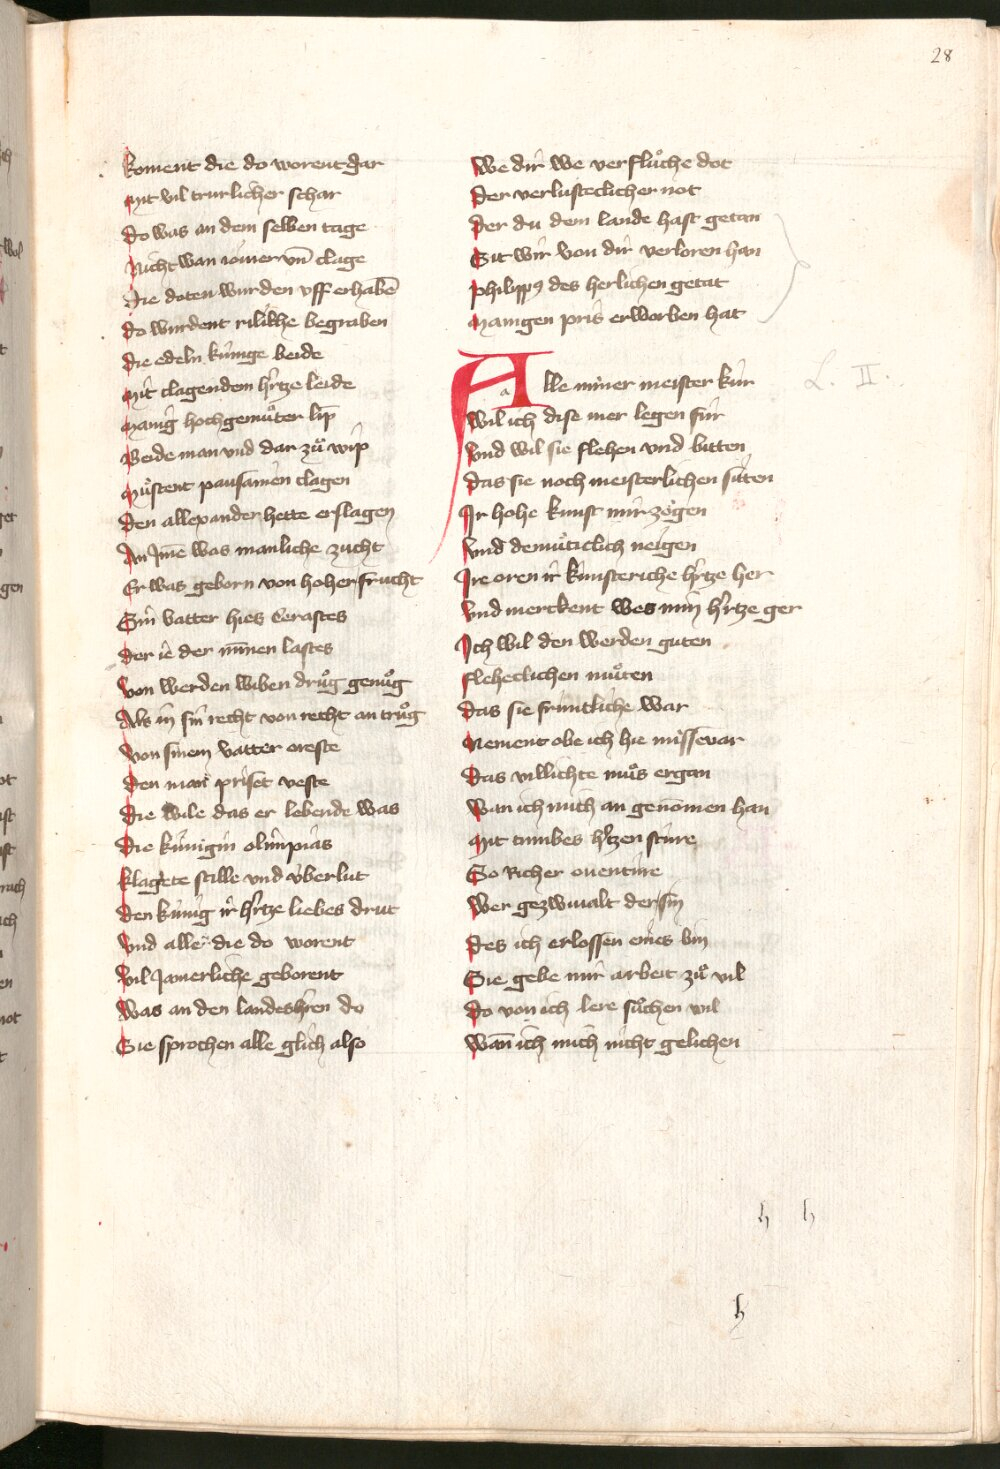 28
koment die do worent gar
mit vil trurlicher schar
do was an dem selben tage
Nicht wan iomer vn̄ clage
die doten wurden vff erhabē
do wurdent riliche begraben
die edeln kúnige beide
mit clagendem hr̄tze leide
manig hochgemuͦter lip
Beide man vnd dar zuͦ wip
muͦstent pausanien clagen
den allexander hette erslagen
An Jme was manliche zucht
Er was geborn von hoher frucht
Sin vatter hies Cerastes
der ie der minnen lastes
von werden wiben druͦg genuͦg
Als in sin recht von recht an truͦg
von sinem vatter oreste
den man priset veste
die wile das er lebende was
die kúnigin olimpias
klagete stille vnd v́berlut
den kúnig ir hr̄tze liebes drut
vnd alle die do worent
vil Jamerliche geborent
was an den landeshr̄en do
Sie sprochen alle glich also
we dir we verfluͦche dot
der verlusteclicher not
der du dem lande hast getan
Sit wir von dir verloren han
philippꝰ des herlichen getat
manigen pris erworben hat
Alle miner meister kúr
L. II.
wil ich dise mer legen fúr
vnd wil sie flehen vnd bitten
das sie noch meisterlichen sitten
Ir hohe kunst mir zoͤgen
vnd demuͤticlich neigen
Ire oren ir kunsteriche hr̄tze her
vnd merckent wes min hr̄tze ger
Ich wil den werden guten
fleheclichen muͦten
das sie frúntliche war
Nement obe ich hie missevar
das villichte muͦs ergan
wan ich mich an genomen han
mit tumbes hr̄tzen stúre
So Richer ouentúre
wer gezwiualt der sin
des ich erlossen eines bin
Sie gebe mir arbeit zuͦ vil
do von ich lere suͦchen wil
wan̄ ich mich nicht gelichen
h h
h